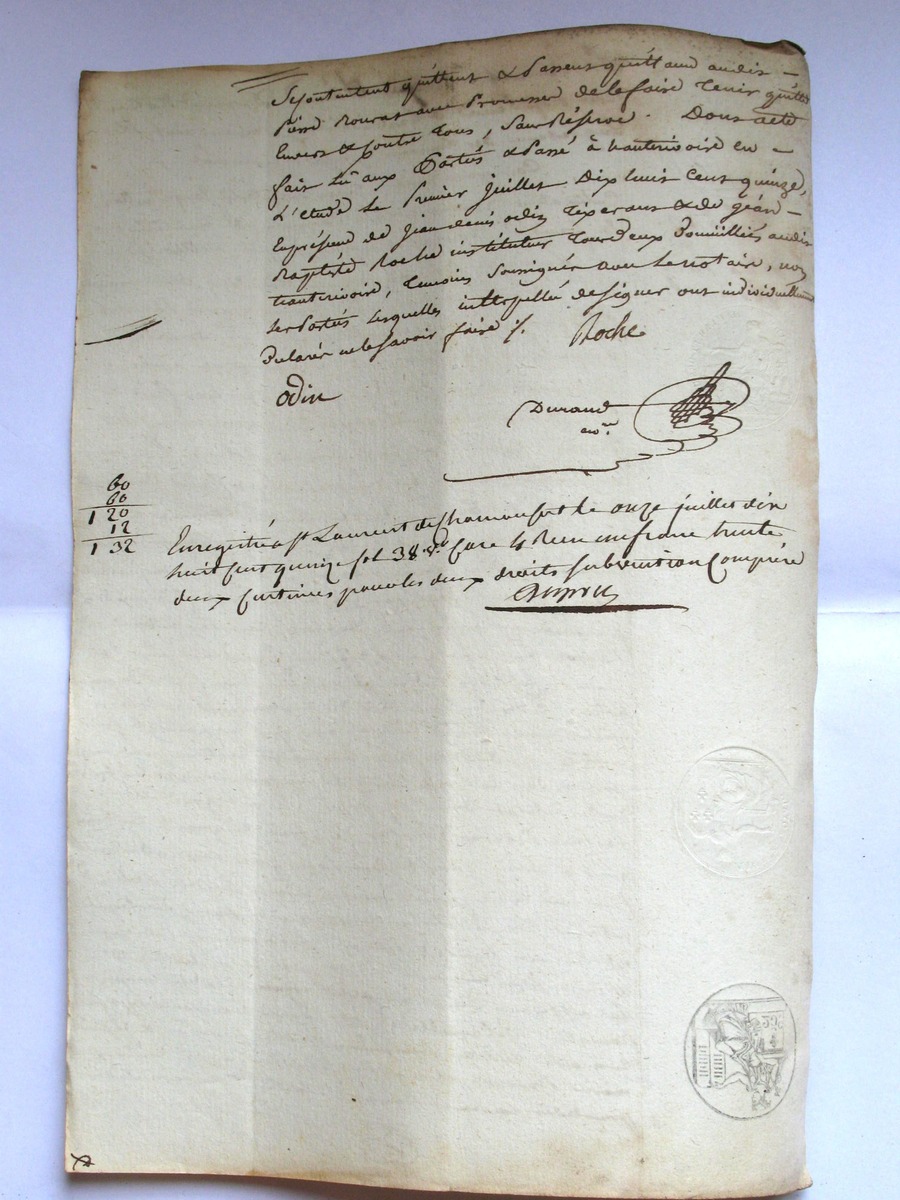 Se contentent quittent & Passent quittance audit
Pierre Rourat avec Promesse de le faire Tenir quitte
Envers & Contre Tous, Sans Réserve. Dont acte
fait Lû aux Parties & Passé à hauterivoire en
L'etude Le Premier juillet Dix huit Cent quinze,
En présence de jean denis odin Tixerant & de jean
Baptiste Roche instituteur Tous deux Domiciliés audit
hauterivoire, Temoins Soussignés avec Le notaire, non
Les Parties Lesquelles interpellé de Signer ont individuellement
Déclarés ne le Savoir faire ./. Roche
odin
Durand
nore
60
60
120
12
132
Enregistré à st Laurent de Chamousset le onze juillet dix
huit cent quinze fol 38 Case 4 Reçu un franc trente
deux Centimes pour les deux droits subvention Comprise